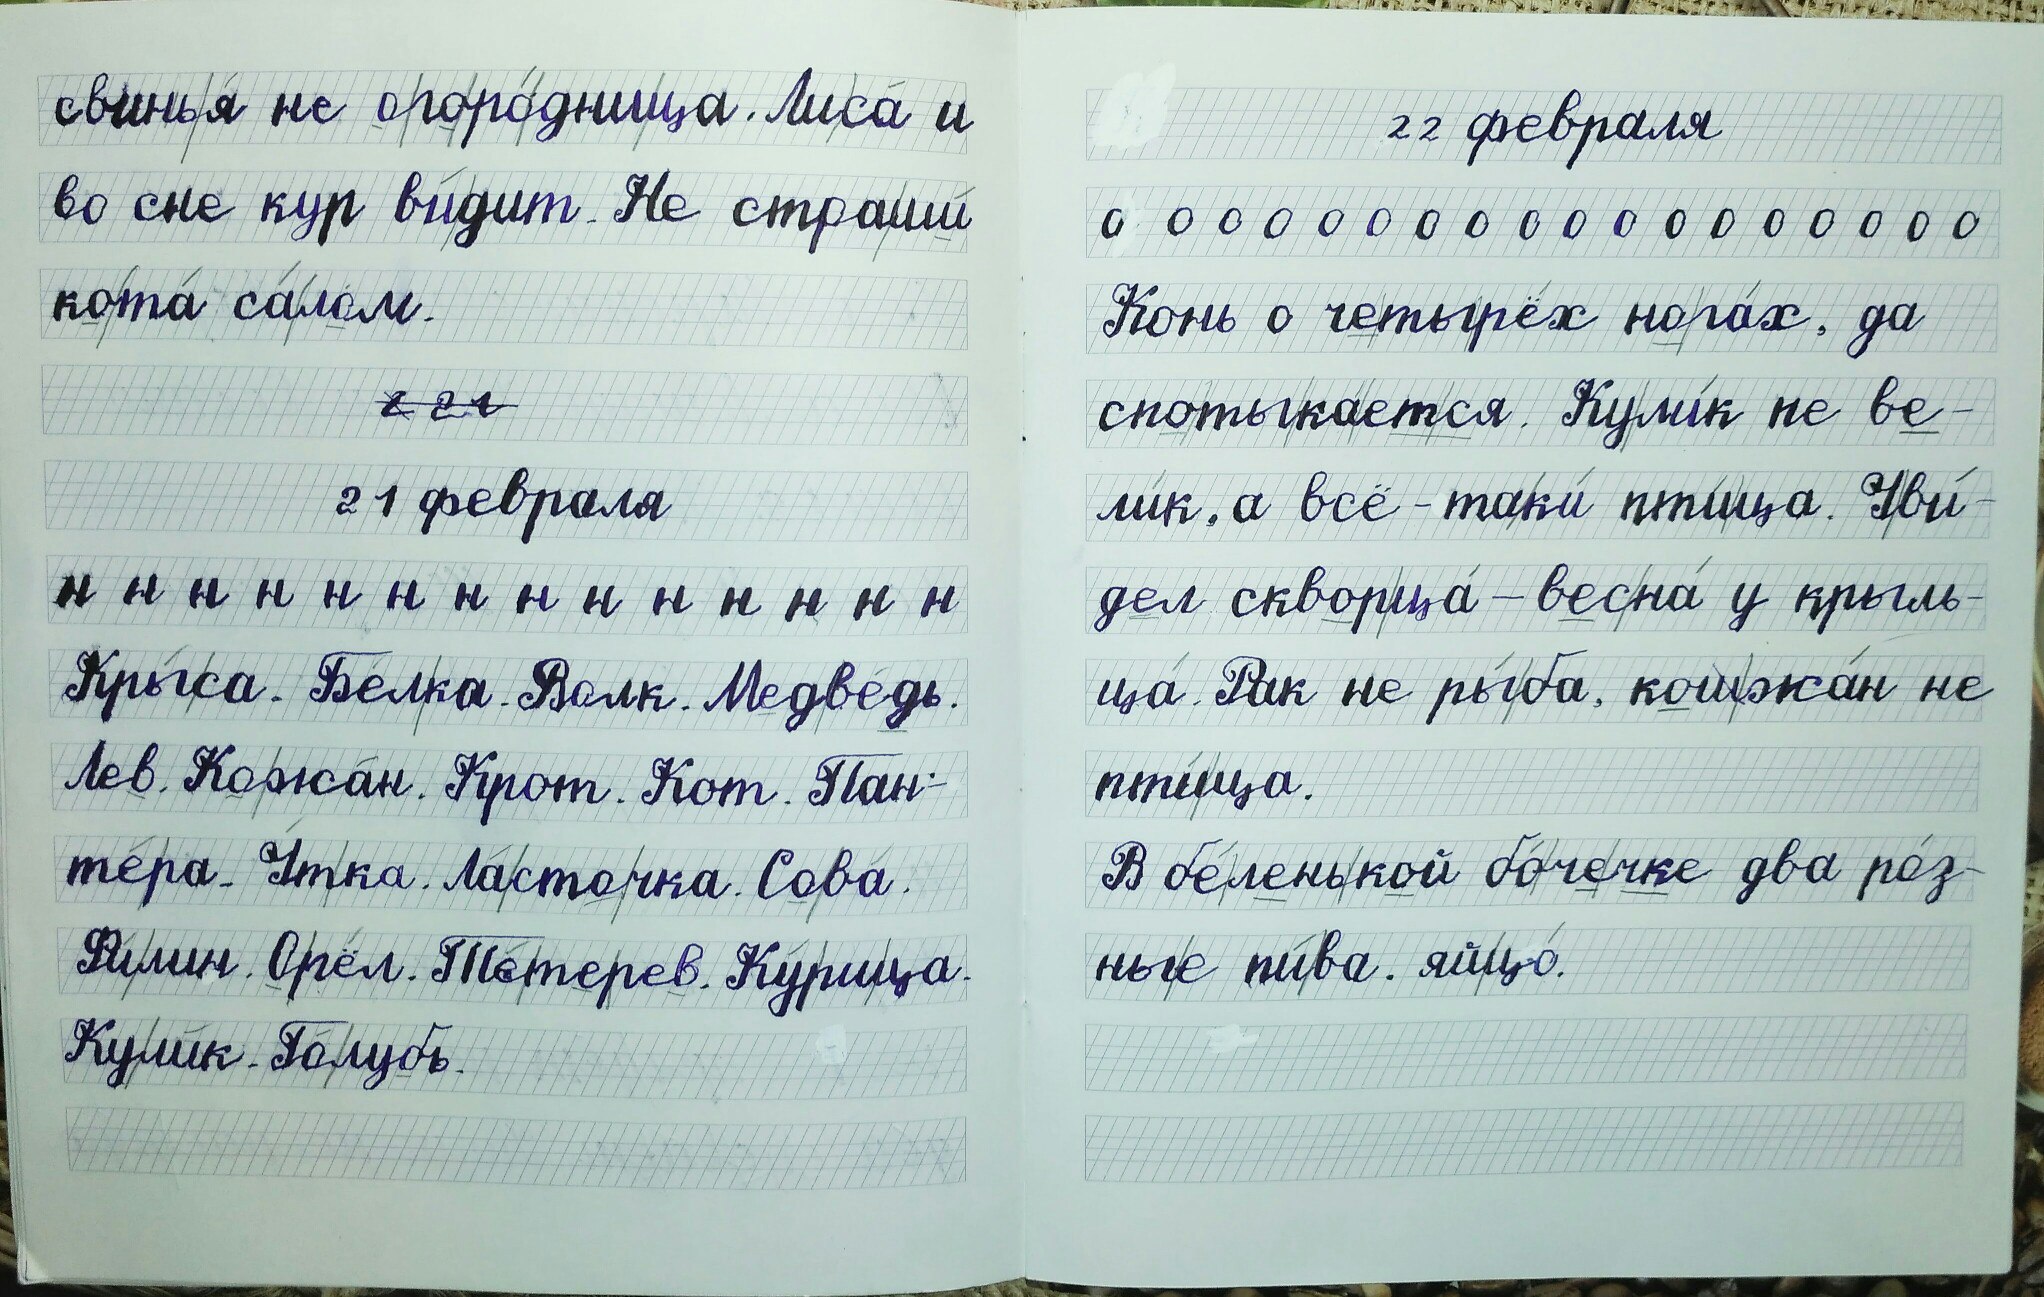 свинья́ не огоро́дница. Лиса́ и
во сне кур ви́дит. Не страши́
кота́ са́лом.
21 февраля
н н н н н н н н н н н н н н
Кры́са. Бе́лка. Волк. Медве́дь.
Лев. Кожа́н. Крот. Кот. Пан-
те́ра. У́тка. Ла́сточка. Сова́.
Фи́лин. Орёл. Те́терев. Ку́рица.
Кули́к. Го́лубь.
22 февраля
о о о о о о о о о о о о о о о о о о
Конь о четырёх нога́х, да
спотыка́ется. Кули́к не ве-
ли́к, а всё-таки́ пти́ца. Уви́-
дел скворца́ – весна́ у крыль-
ца́. Рак не ры́ба, кожа́н не
пти́ца.
В бе́ленькой бо́чечке два ро́з-
ные пи́ва. яйцо́.